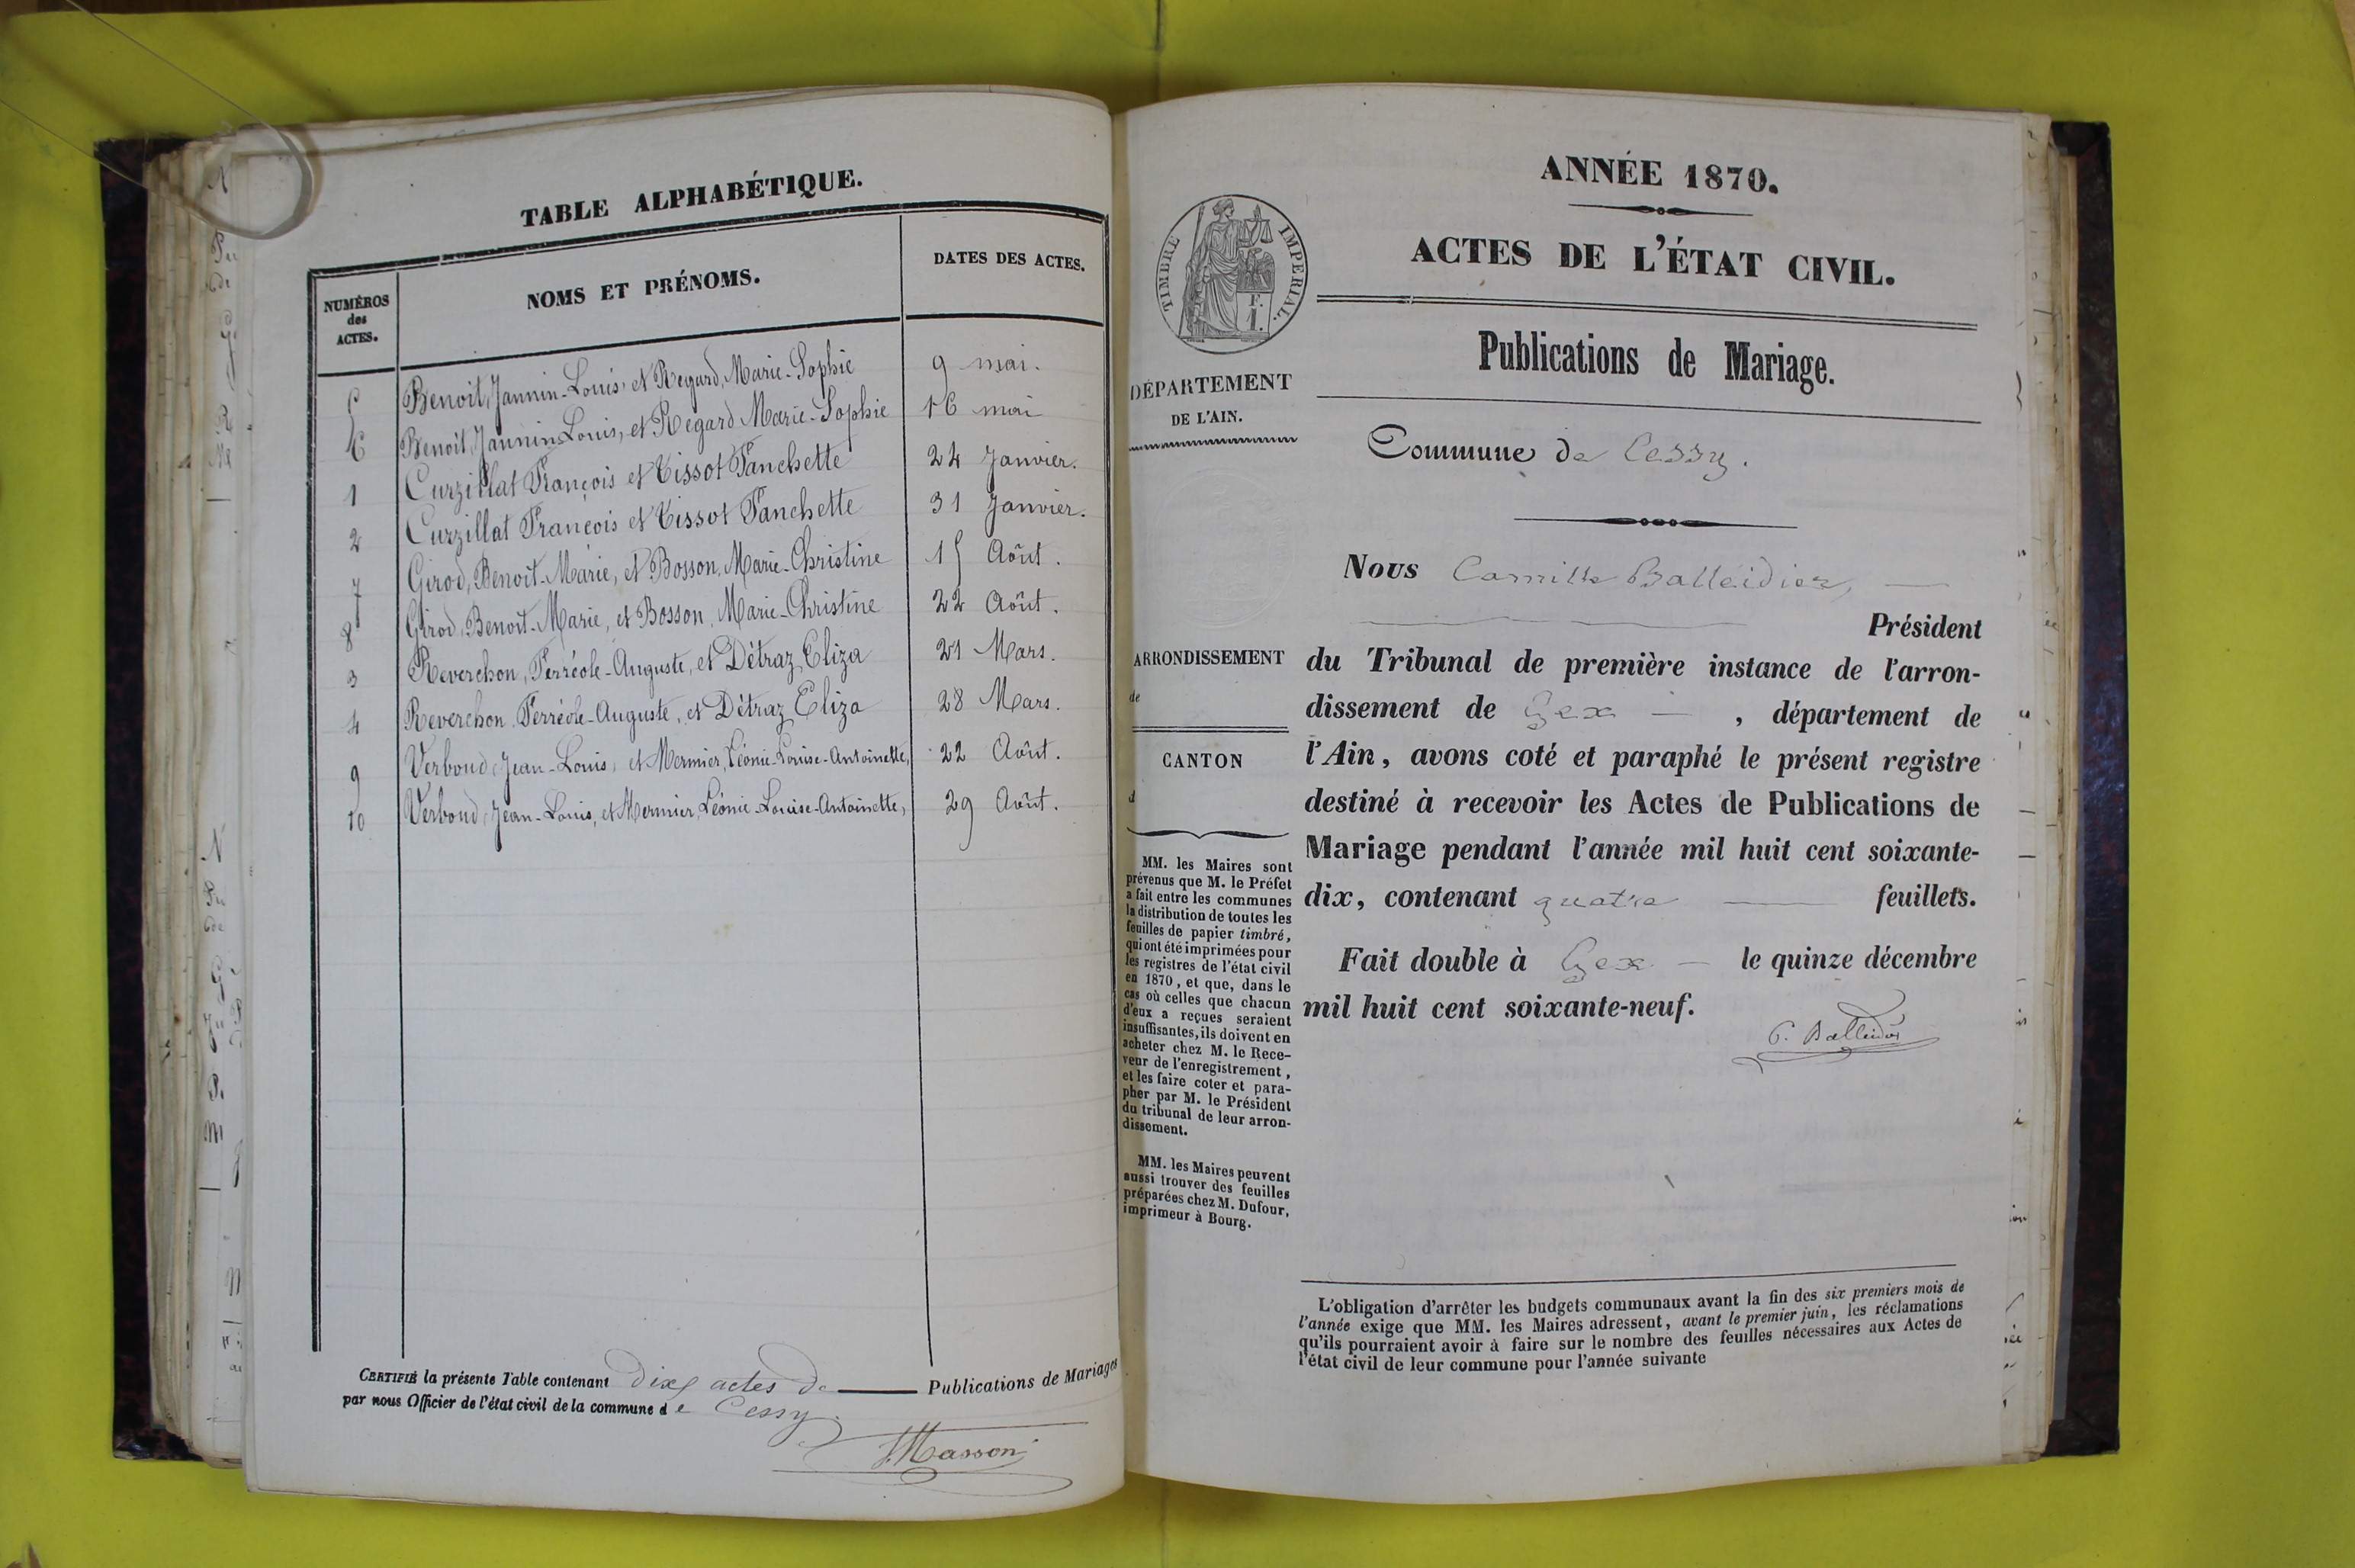 TABLE ALPHABÉTIQUE.
NUMÉROS des ACTES.
NOMS ET PRÉNOMS.
DATES DES ACTES.
5 Benoit, Jannin-Louis, et Regard, Marie-Sophie 9 mai.
6 Benoit, Jannin Louis, et Regard Marie-Sophie 16 mai
1 Curzillat François et Tissot Fanchette 24 Janvier.
2 Curzillat François et Tissot Fanchette 31 Janvier.
7 Girod, Benoit-Marie, et Bosson, Marie-Christine 15 Août.
8 Girod, Benoit-Marie, et Bosson, Marie-Christine 22 Août.
3 Reverchon, Ferréole-Auguste, et Détraz, Eliza 21 Mars.
4 Reverchon Ferréole-Auguste, et Détraz Eliza 28 Mars.
9 Verboud, Jean-Louis, et Mermier, Léonie-Louise-Antoinette, 22 Août.
10 Verboud, Jean-Louis, et Mermier, Léonie-Louise-Antoinette, 29 Août.
CERTIFIÉ la présente Table contenant dix actes de Publications de Mariages
par nous Officier de l'état civil de la commune de Cessy.
Masson
ANNÉE 1870.
ACTES DE L'ÉTAT CIVIL.
TIMBRE IMPÉRIAL.
F.
1.
Publications de Mariage.
DÉPARTEMENT
DE L'AIN.
Commune de Cessy.
Nous Camille Balleidier,
Président
ARRONDISSEMENT
de
CANTON
d
du Tribunal de première instance de l'arron-
dissement de Gex, département de
l'Ain, avons coté et paraphé le présent registre
destiné à recevoir les Actes de Publications de
Mariage pendant l'année mil huit cent soixante-
dix, contenant quatre feuillets.
Fait double à Gex le quinze décembre
mil huit cent soixante-neuf.
C. Balleidier
MM. les Maires sont
prévenus que M. le Préfet
a fait entre les communes
la distribution de toutes les
feuilles de papier timbré,
qui ont été imprimées pour
les registres de l'état civil
en 1870, et que, dans le
cas où celles que chacun
d'eux a reçues seraient
insuffisantes, ils doivent en
acheter chez M. le Rece-
veur de l'enregistrement,
et les faire coter et para-
pher par M. le Président
du tribunal de leur arron-
dissement.
MM. les Maires peuvent
aussi trouver des feuilles
préparées chez M. Dufour,
imprimeur à Bourg.
L'obligation d'arrêter les budgets communaux avant la fin des six premiers mois de
l'année exige que MM. les Maires adressent, avant le premier juin, les réclamations
qu'ils pourraient avoir à faire sur le nombre des feuilles nécessaires aux Actes de
l'état civil de leur commune pour l'année suivante